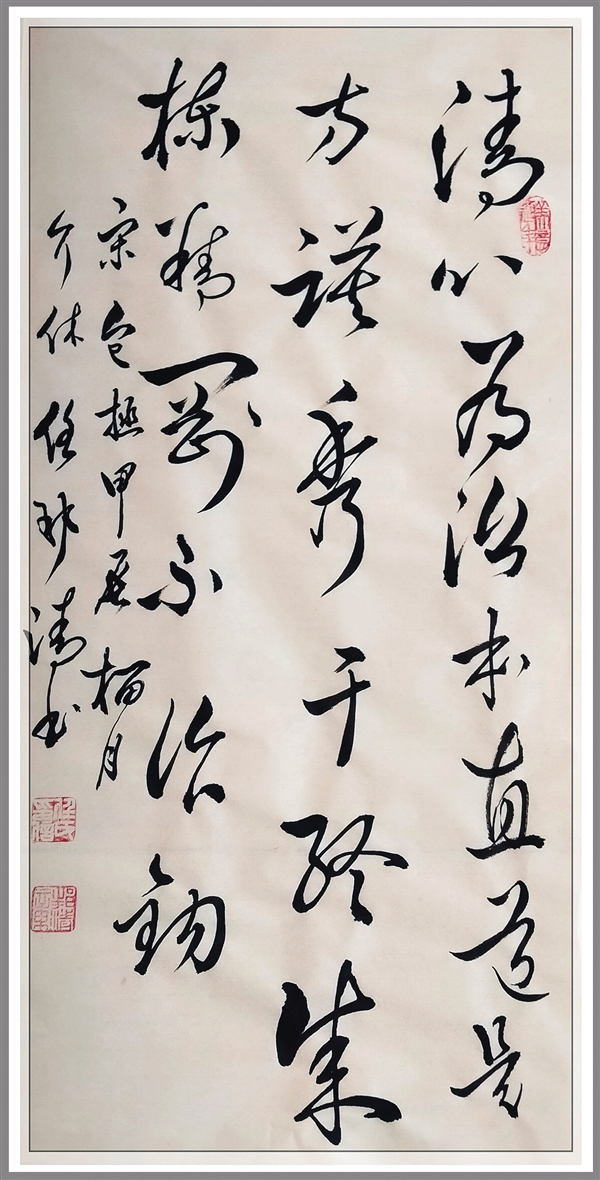 清心为治本直道是
身谋秀干终成
栋精剛不作钩
宋包拯甲辰榴月
介休任清书